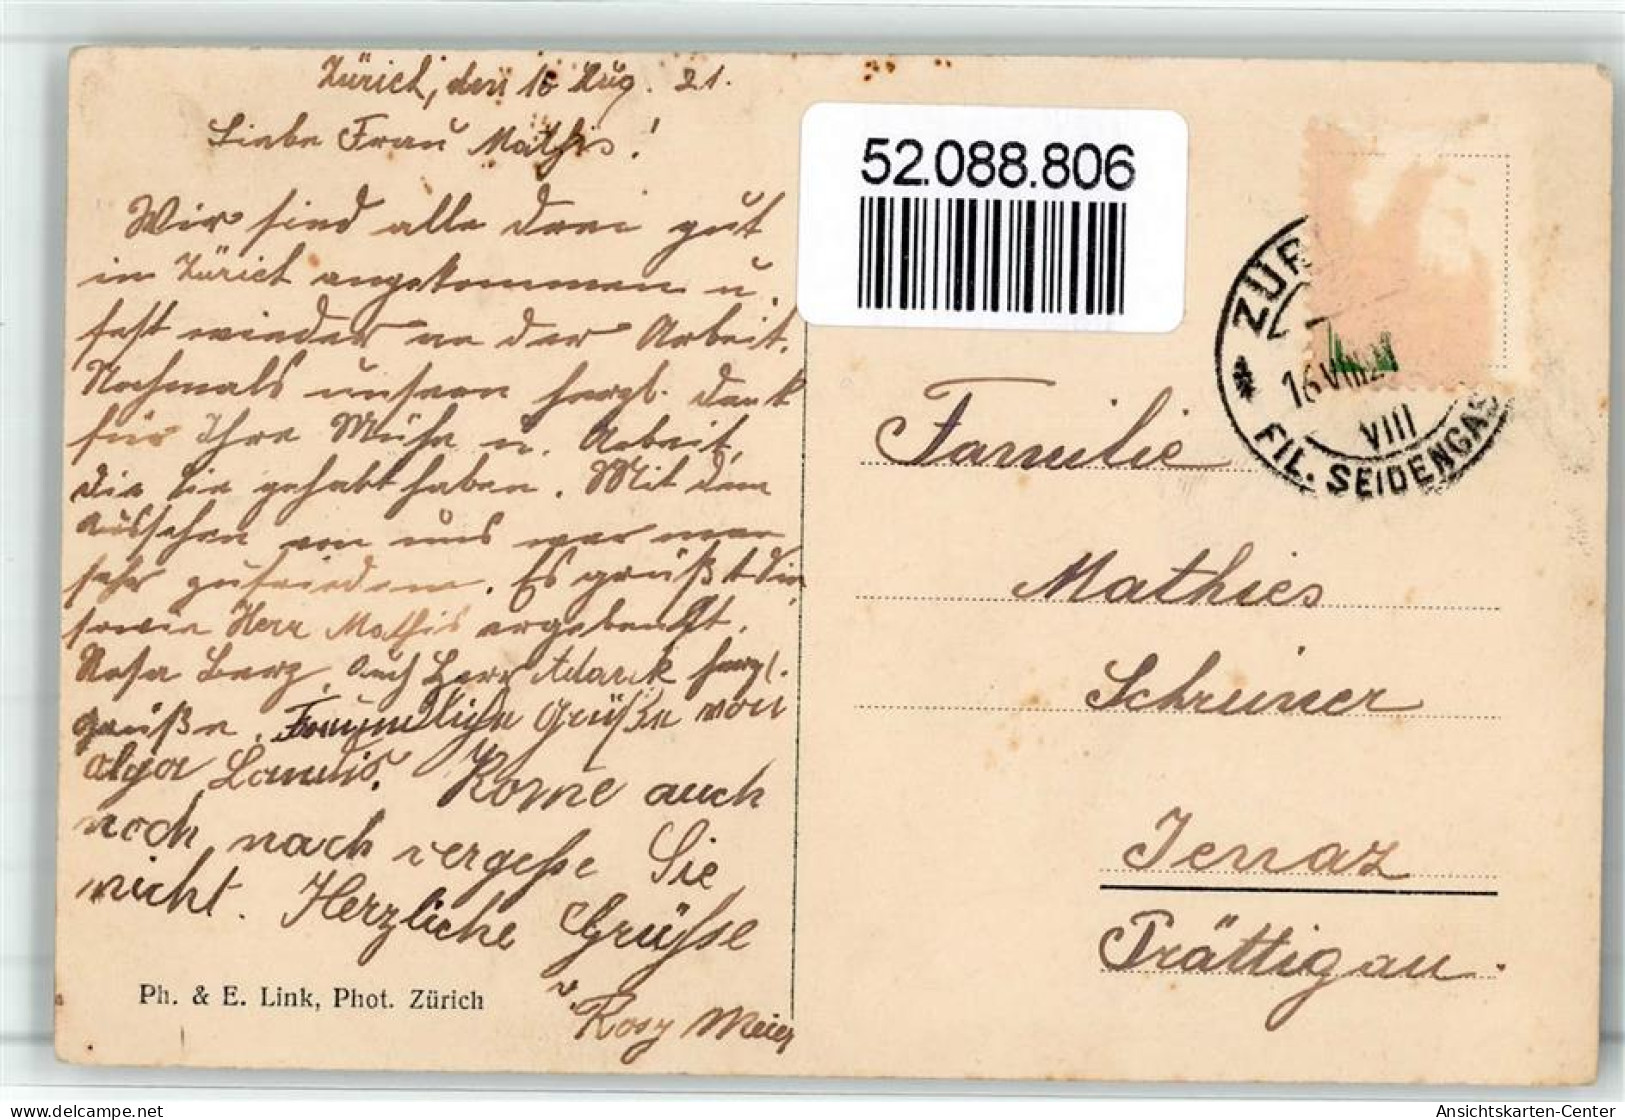 Zürich, den 16 Aug. 21.
Liebe Frau Mathis!
Wir sind alle drei gut
in Zürich angekommen u.
fest wieder an der Arbeit.
Nochmals unsern herzl. Dank
für Ihre Mühe u. Arbeit,
die Sie gehabt haben. Mit dem
Aussehen von uns war man
sehr zufrieden. Es grüßt Sie
sowie Herr Mathis ergebenst.
Rosa Berz. Auch Herr herzl.
grüße. Freundliche Grüße von
Olga Landis. Kome auch
noch nach vergeße Sie
nicht. Herzliche Grüsse
v. Rosy Meier
Ph. & E. Link, Phot. Zürich
52.088.806
ZÜR
16 VIII 21
VIII
* FIL. SEIDENGAS
Familie
Mathies
Schreiner
Jenaz
Prättigau.
www.ansichtskartenversand.com
Ansichtskarten-Center